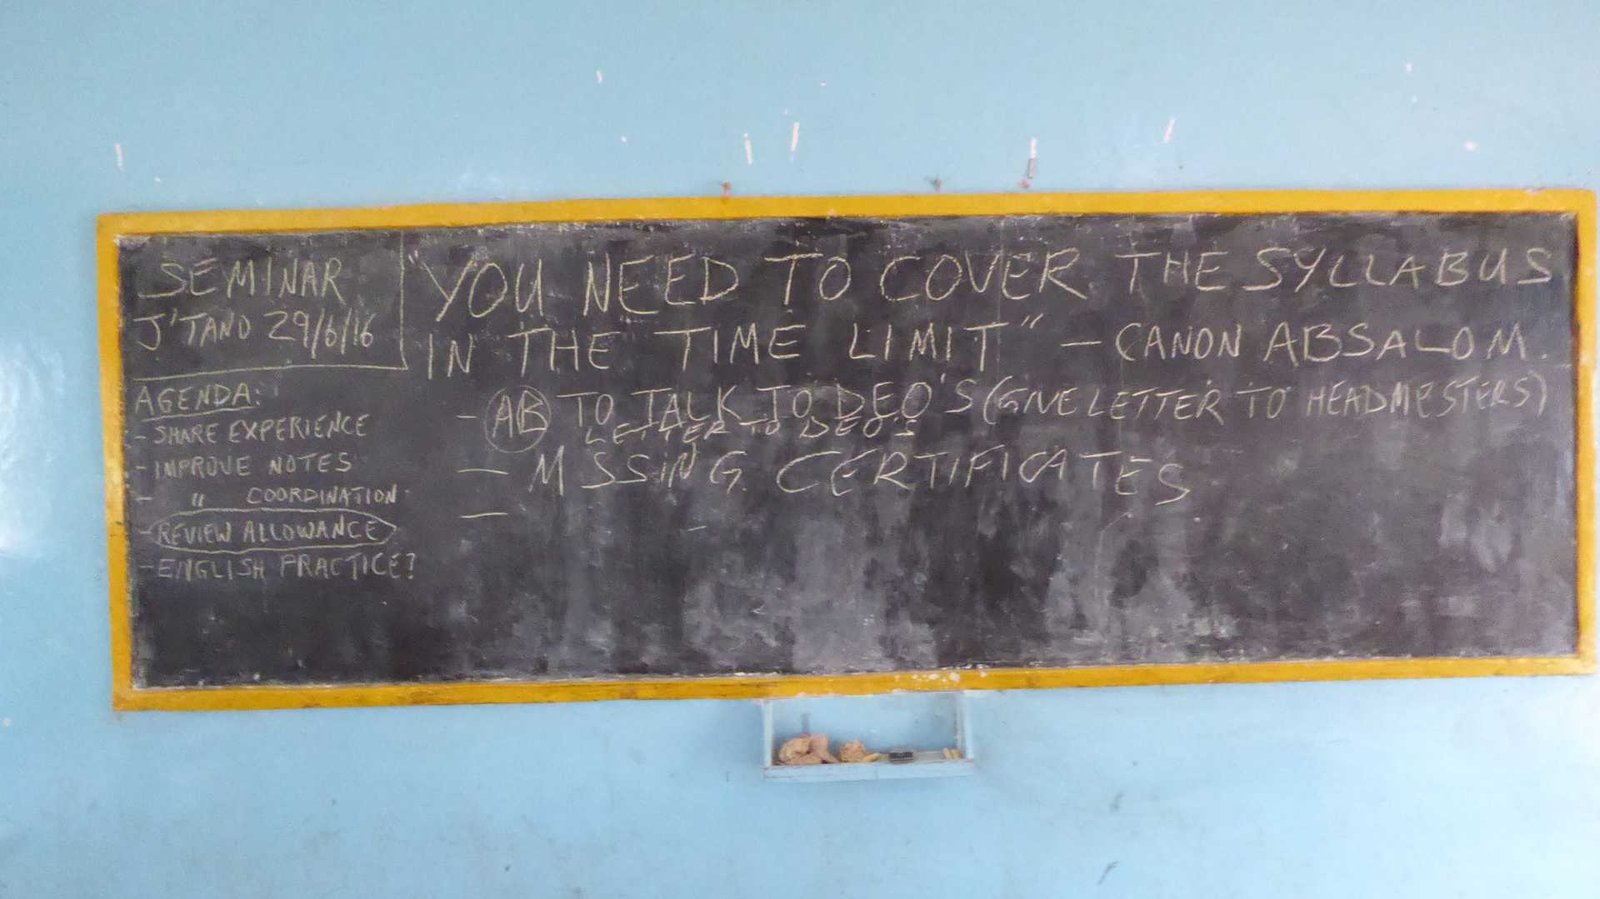 SEMINAR
J'TANO 29/6/16
AGENDA:
- SHARE EXPERIENCE
- IMPROVE NOTES
- " COORDINATION
- REVIEW ALLOWANCE
- ENGLISH PRACTICE?
"YOU NEED TO COVER THE SYLLABUS
IN THE TIME LIMIT" - CANON ABSALOM.
- AB TO TALK TO DEO'S (GIVE LETTER TO HEADMESTERS)
LETTER TO DEO'S
- MSSING CERTIFICATES
-